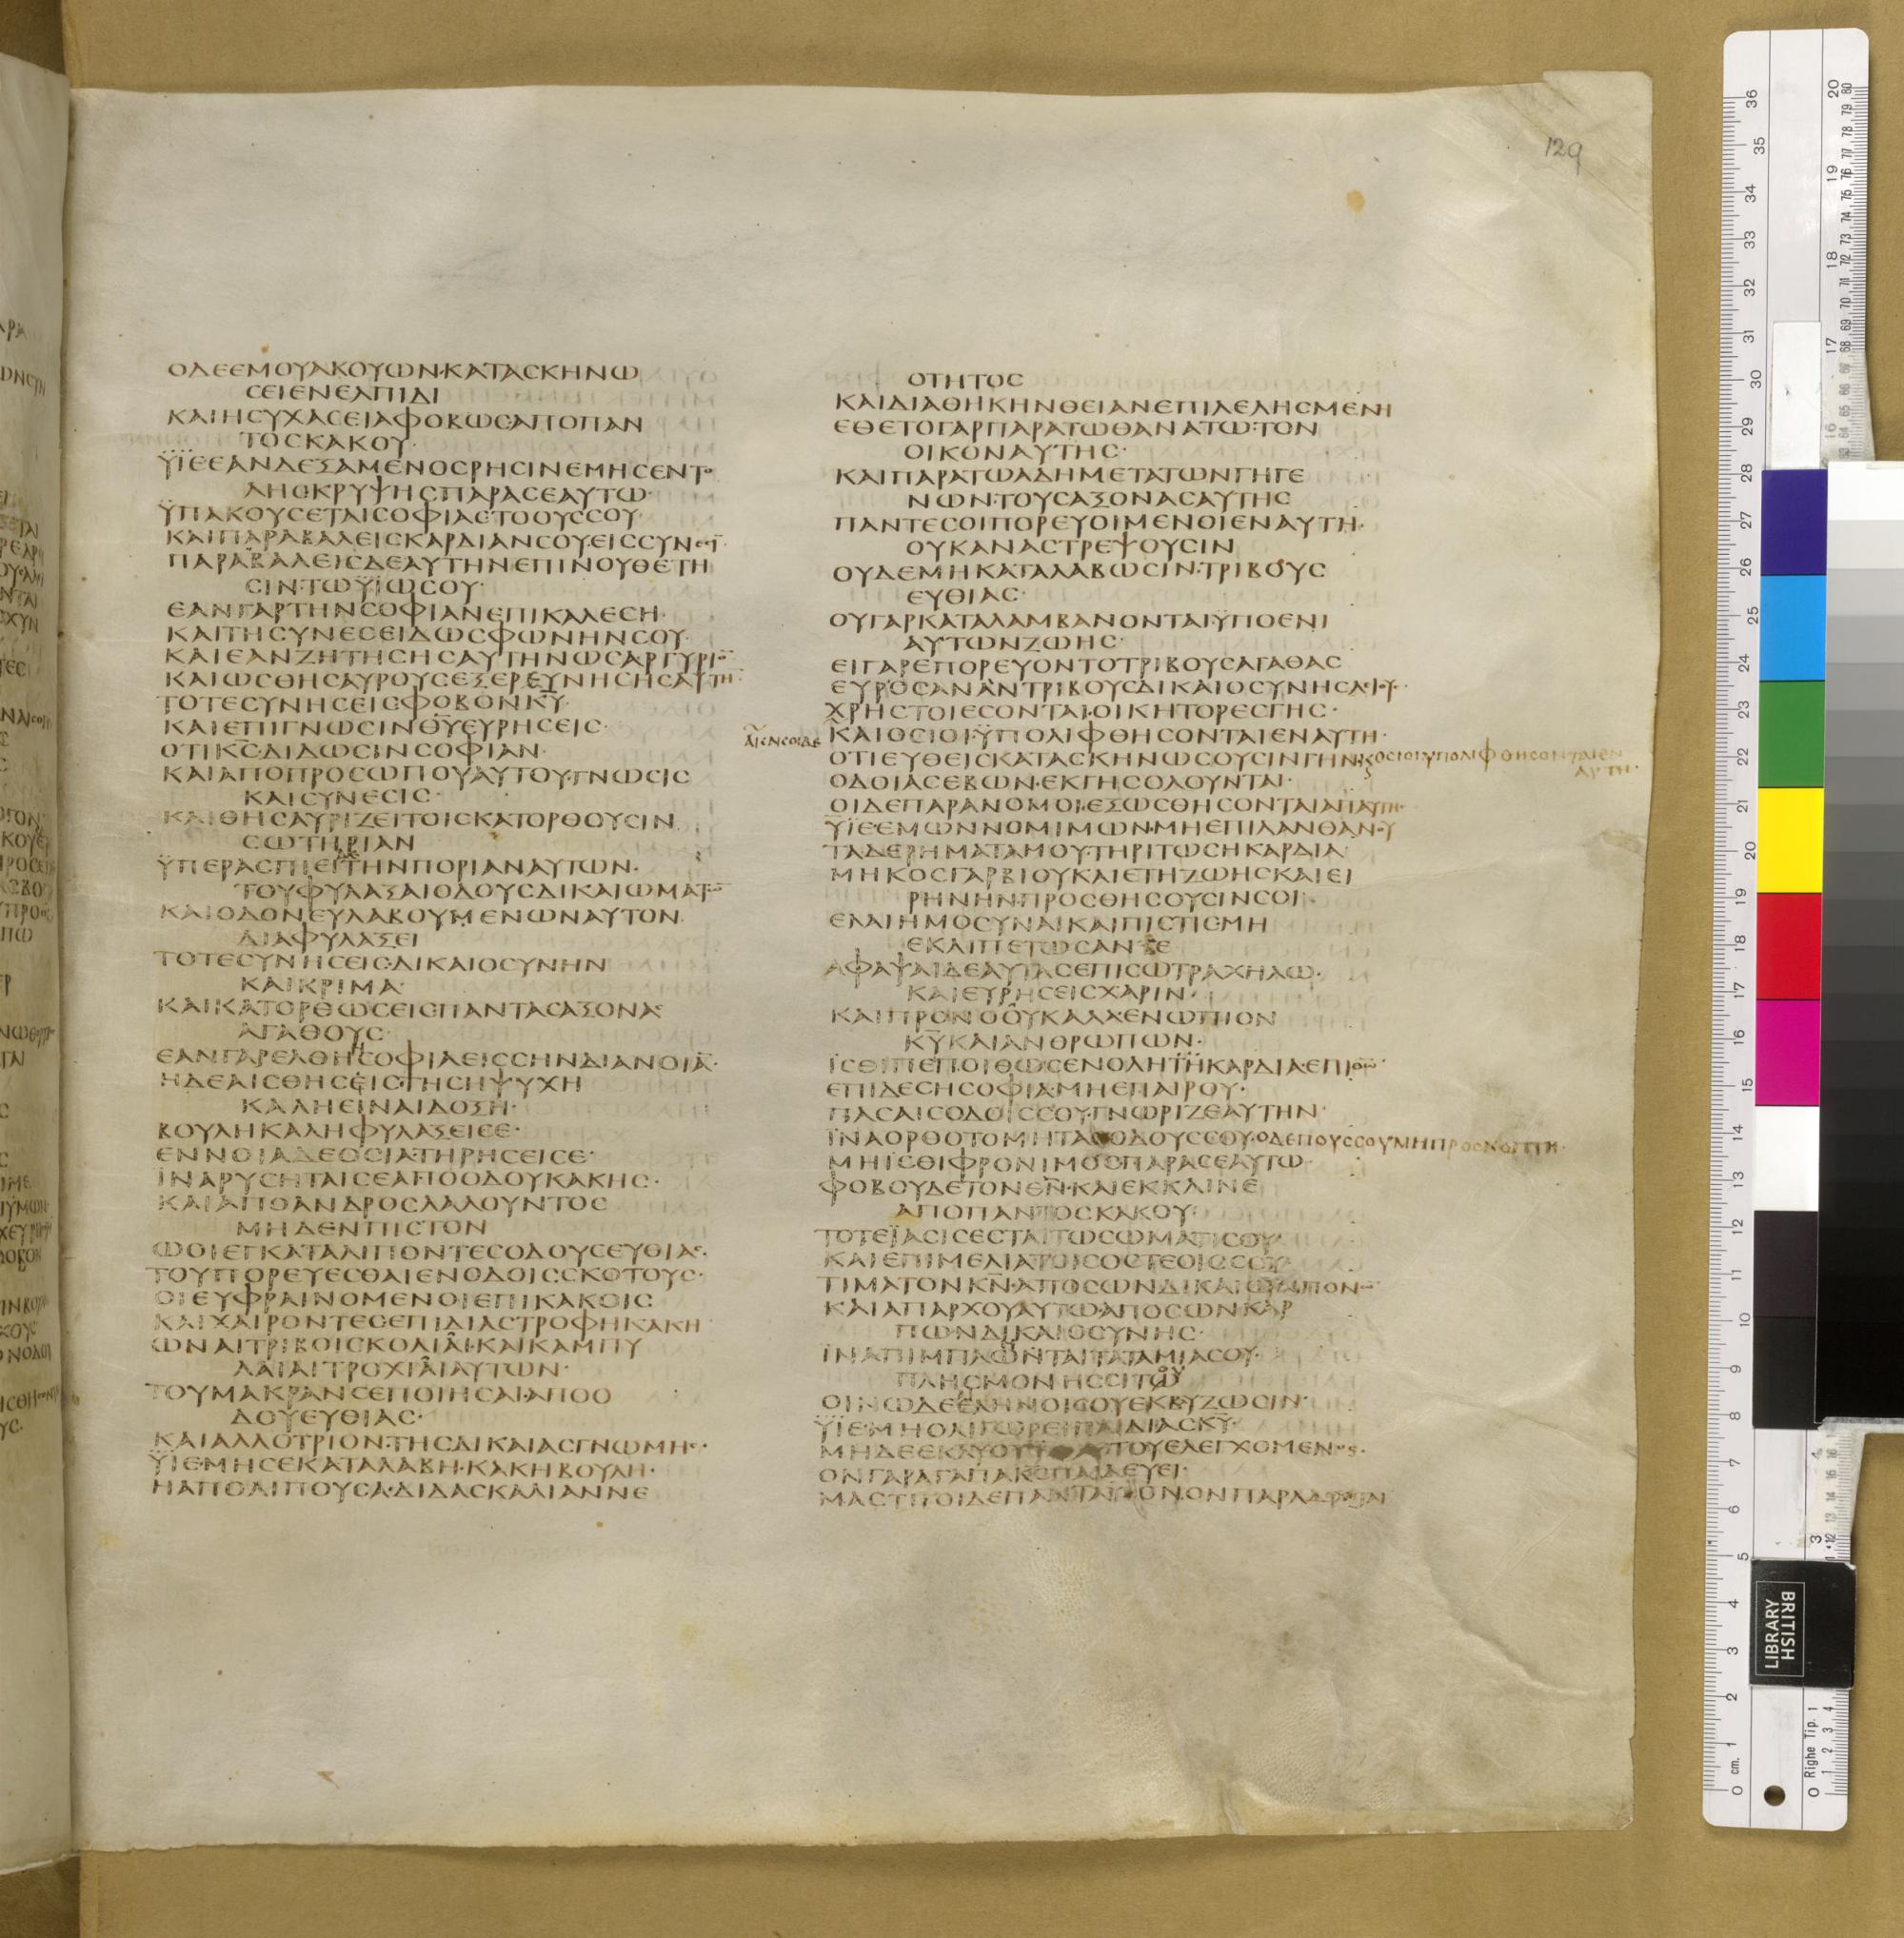 129
ΟΔΕΕΜΟΥΑΚΟΥΩΝ·ΚΑΤΑϹΚΗΝΩ
ϹΕΙΕΝΕΛΠΙΔΙ
ΚΑΙΗϹΥΧΑϹΕΙΑΦΟΒΩϹΑΠΟΠΑΝ
ΤΟϹΚΑΚΟΥ·
ΫΪΕΕΑΝΔΕΞΑΜΕΝΟϹΡΗϹΙΝΕΜΗϹΕΝΤΟ
ΛΗϹΚΡΥΨΗϹΠΑΡΑϹΕΑΥΤΩ·
ΫΠΑΚΟΥϹΕΤΑΙϹΟΦΙΑϹΤΟΟΥϹϹΟΥ·
ΚΑΙΠΑΡΑΒΑΛΕΙϹΚΑΡΔΙΑΝϹΟΥΕΙϹϹΥΝΕϹΙ
ΠΑΡΑΒΑΛΕΙϹΔΕΑΥΤΗΝΕΠΙΝΟΥΘΕΤΗ
ϹΙΝ·ΤΩΫΪΩϹΟΥ·
ΕΑΝΓΑΡΤΗΝϹΟΦΙΑΝΕΠΙΚΑΛΕϹΗ·
ΚΑΙΤΗϹΥΝΕϹΕΙΔΩϹΦΩΝΗΝϹΟΥ·
ΚΑΙΕΑΝΖΗΤΗϹΗϹΑΥΤΗΝΩϹΑΡΓΥΡΙΟ̅
ΚΑΙΩϹΘΗϹΑΥΡΟΥϹΕΞΕΡΕΥΝΗϹΗϹΑΥΤΗ
ΤΟΤΕϹΥΝΗϹΕΙϹΦΟΒΟΝΚ̅Υ̅·
ΚΑΙΕΠΙΓΝΩϹΙΝΘ̅Υ̅ΕΥΡΗϹΕΙϹ·
ΟΤΙΚ̅Ϲ̅ΔΙΔΩϹΙΝϹΟΦΙΑΝ·
ΚΑΙΑΠΟΠΡΟϹΩΠΟΥΑΥΤΟΥ·ΓΝΩϹΙϹ
ΚΑΙϹΥΝΕϹΙϹ·
ΚΑΙΘΗϹΑΥΡΙΖΕΙΤΟΙϹΚΑΤΟΡΘΟΥϹΙΝ
ϹΩΤΗΡΙΑΝ
ΫΠΕΡΑϹΠΙΕΙΤΗΝΠΟΡΙΑΝΑΥΤΩΝ·
ΤΟΥΦΥΛΑΞΑΙΟΔΟΥϹΔΙΚΑΙΩΜΑΤΩ̅
ΚΑΙΟΔΟΝΕΥΛΑΒΟΥΜΕΝΩΝΑΥΤΟΝ
ΔΙΑΦΥΛΑΞΕΙ
ΤΟΤΕϹΥΝΗϹΕΙϹΔΙΚΑΙΟϹΥΝΗΝ
ΚΑΙΚΡΙΜΑ·
ΚΑΙΚΑΤΟΡΘΩϹΕΙϹΠΑΝΤΑϹΑΞΟΝΑϹ
ΑΓΑΘΟΥϹ·
ΕΑΝΓΑΡΕΛΘΗΗϹΟΦΙΑΕΙϹϹΗΝΔΙΑΝΟΙΑ̅·
ΗΔΕΑΙϹΘΗϹΕΙϹΤΗϹΗΨΥΧΗ
ΚΑΛΗΕΙΝΑΙΔΟΞΗ·
ΒΟΥΛΗΚΑΛΗΦΥΛΑΞΕΙϹΕ·
ΕΝΝΟΙΑΔΕΟϹΙΑΤΗΡΗϹΕΙϹΕ·
ΪΝΑΡΥϹΗΤΑΙϹΕΑΠΟΟΔΟΥΚΑΚΗϹ·
ΚΑΙΑΠΟΑΝΔΡΟϹΛΑΛΟΥΝΤΟϹ
ΜΗΔΕΝΠΙϹΤΟΝ
ΩΟΙΕΓΚΑΤΑΛΙΠΟΝΤΕϹΟΔΟΥϹΕΥΘΙΑϹ·
ΤΟΥΠΟΡΕΥΕϹΘΑΙΕΝΟΔΟΙϹϹΚΟΤΟΥϹ·
ΟΙΕΥΦΡΑΙΝΟΜΕΝΟΙΕΠΙΚΑΚΟΙϹ
ΚΑΙΧΑΙΡΟΝΤΕϹΕΠΙΔΙΑϹΤΡΟΦΗΚΑΚΗ
ΩΝΑΙΤΡΙΒΟΙϹΚΟΛΙΑΙ·ΚΑΙΚΑΜΠΥ
ΛΑΙΑΙΤΡΟΧΙΑΙΑΥΤΩΝ·
ΤΟΥΜΑΚΡΑΝϹΕΠΟΙΗϹΑΙ·ΑΠΟΟ
ΔΟΥΕΥΘΙΑϹ·
ΚΑΙΑΛΛΟΤΡΙΟΝ·ΤΗϹΔΙΚΑΙΑϹΓΝΩΜΗϹ·
ΫΪΕ·ΜΗϹΕΚΑΤΑΛΑΒΗ·ΚΑΚΗΒΟΥΛΗ·
ΗΑΠΟΛΙΠΟΥϹΑ·ΔΙΔΑϹΚΑΛΙΑΝΝΕ
ΟΤΗΤΟϹ
ΚΑΙΔΙΑΘΗΚΗΝΘΕΙΑΝΕΠΙΛΕΛΗϹΜΕΝΗ
ΕΘΕΤΟΓΑΡΠΑΡΑΤΩΘΑΝΑΤΩ·ΤΟΝ
ΟΙΚΟΝΑΥΤΗϹ·
ΚΑΙΠΑΡΑΤΩΑΔΗΜΕΤΑΤΩΝΓΗΓΕ
ΝΩΝ·ΤΟΥϹΑΞΟΝΑϹΑΥΤΗϹ
ΠΑΝΤΕϹΟΙΠΟΡΕΥΟΙΜΕΝΟΙΕΝΑΥΤΗ·
ΟΥΚΑΝΑϹΤΡΕΨΟΥϹΙΝ
ΟΥΔΕΜΗΚΑΤΑΛΑΒΩϹΙΝ·ΤΡΙΒΟΥϹ
ΕΥΘΙΑϹ·
ΟΥΓΑΡΚΑΤΑΛΑΜΒΑΝΟΝΤΑΙΫΠΟΕΝΙ
ΑΥΤΩΝΖΩΗϹ·
ΕΙΓΑΡΕΠΟΡΕΥΟΝΤΟΤΡΙΒΟΥϹΑΓΑΘΑϹ
ΕΥΡΟϹΑΝΑΝΤΡΙΒΟΥϹΔΙΚΑΙΟϹΥΝΗϹ
ΧΡΗϹΤΟΙΕϹΟΝΤΑΙ·ΟΙΚΗΤΟΡΕϹΓΗϹ·
ΚΑΙΟϹΙΟΙΫΠΟΛΙΦΘΗϹΟΝΤΑΙΕΝΑΥΤΗ·
ΟΤΙΕΥΘΕΙϹΚΑΤΑϹΚΗΝΩϹΟΥϹΙΝΓΗΝ ΚϛΟϹΙΟΙΫΠΟΛΙΦΘΗϹΟΝΤΑΙΕΝ
ΑΥΤΗ·
ΟΔΟΙΑϹΕΒΩΝ·ΕΚΓΗϹΟΛΟΥΝΤΑΙ·
ΟΙΔΕΠΑΡΑΝΟΜΟΙ·ΕΞΩϹΘΗϹΟΝΤΑΙΑΠΑΥΤΗϹ·
ΫΪΕΕΜΩΝΝΟΜΙΜΩΝ·ΜΗΕΠΙΛΑΝΘΑΝΟΥ
ΤΑΔΕΡΗΜΑΤΑΜΟΥ·ΤΗΡΙΤΩϹΗΚΑΡΔΙΑ·
ΜΗΚΟϹΓΑΡΒΙΟΥΚΑΙΕΤΗΖΩΗϹΚΑΙΕΙ
ΡΗΝΗΝ·ΠΡΟϹΘΗϹΟΥϹΙΝϹΟΙ·
ΕΛΑΙΗΜΟϹΥΝΑΙΚΑΙΠΙϹΤΙϹΜΗ
ΕΚΛΙΠΕΤΩϹΑΝϹΕ
ΑΦΑΨΑΙΔΕΑΥΤΑϹΕΠΙϹΩΤΡΑΧΗΛΩ·
ΚΑΙΕΥΡΗϹΕΙϹΧΑΡΙΝ·
ΚΑΙΠΡΟΝΟΟΥΚΑΛΑ·ΕΝΩΠΙΟΝ
Κ̅Υ̅ΚΑΙΑΝΘΡΩΠΩΝ·
ΪϹΘΙΠΕΠΟΙΘΩϹΕΝΟΛΗΤΗΚΑΡΔΙΑ·ΕΠΙΘΩ
ΕΠΙΔΕϹΗϹΟΦΙΑ·ΜΗΕΠΑΙΡΟΥ·
ΠΑϹΑΙϹΟΔΟΙϹϹΟΥ·ΓΝΩΡΙΖΕΑΥΤΗΝ·
ΪΝΑΟΡΘΟΤΟΜΗΤΑϹΟΔΟΥϹϹΟΥ·ΟΔΕΠΟΥϹϹΟΥΜΗΠΡΟϹΚΟΠΤΗ·
ΜΗΪϹΘΙΦΡΟΝΙΜΟϹΠΑΡΑϹΕΑΥΤΩ·
ΦΟΒΟΥΔΕΤΟΝΘ̅Ν̅·ΚΑΙΕΚΚΛΙΝΕ
ΑΠΟΠΑΝΤΟϹΚΑΚΟΥ·
ΤΟΤΕΪΑϹΙϹΕϹΤΑΙΤΩϹΩΜΑΤΙϹΟΥ
ΚΑΙΕΠΙΜΕΛΙΑΤΟΙϹΟϹΤΕΟΙϹϹΟΥ
ΤΙΜΑΤΟΝΚ̅Ν̅·ΑΠΟϹΩΝΔΙΚΑΙΩΝΠΟΝΩ̅
ΚΑΙΑΠΑΡΧΟΥΑΥΤΩ·ΑΠΟϹΩΝΚΑΡ
ΠΩΝΔΙΚΑΙΟϹΥΝΗϹ·
ΪΝΑΠΙΜΠΛΩΝΤΑΙΤΑΤΑΜΙΑϹΟΥ·
ΠΛΗϹΜΟΝΗϹϹΙΤΟΥ
ΟΙΝΩΔΕΑΙΛΗΝΟΙϹΟΥΕΚΒΥΖΩϹΙΝ·
ΫΪΕ·ΜΗΟΛΙΓΩΡΕΙΠΑΙΔΙΑϹΚ̅Υ̅·
ΜΗΔΕΕΚΛΥΟΥΫΠΑΥΤΟΥΕΛΕΓΧΟΜΕΝΟϹ·
ΟΝΓΑΡΑΓΑΠΑΚ̅Ϲ̅ΠΑΙΔΕΥΕΙ·
ΜΑϹΤΙΓΟΙΔΕΠΑΝΤΑΥΙΟΝ·ΟΝΠΑΡΑΔΕΧΕΤΑΙ
BRITISH
LIBRARY
Righe Tip.
cm.